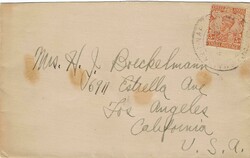 Mrs. H. J. Boeckelmann
6911 Estrella Ave
Los Angeles
California
U. S. A.